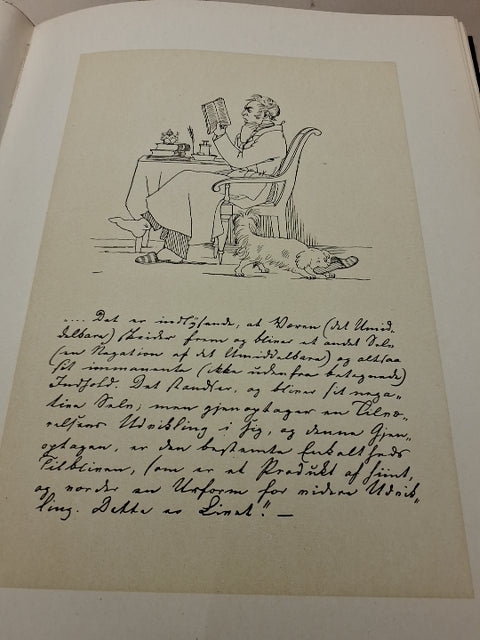 .... Det er indlysende, at Væren (det Umid-
delbare) skrider frem og bliver et andet Selv
(en Negation af det Umiddelbare) og altsaa
sit immanente (ikke udenfra betegnede)
Indhold. Det standser, og bliver sit nega-
tive Selv; men gjenoptager en Tilvæ-
relsens Udvikling i sig, og denne Gjen-
optagen, er den bestemte Enkaltheds
Tilbliven, som er et Produkt af sint,
og vorder en Urform for videre Udvik-
ling. Dette er Livet." —